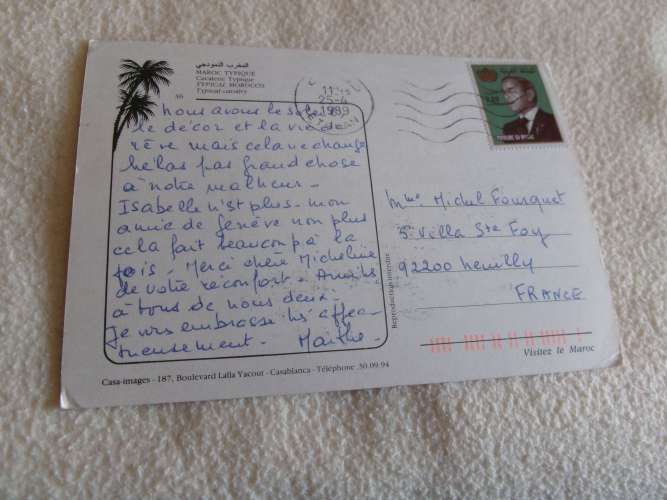 المغرب النموذجي
MAROC TYPIQUE
Cavaleric Typique
TYPICAL MOROCCO
Typical cavalry
nous avons le soleil
le décor et la vie de
rêve mais cela ne change
hélas pas grand chose
à notre malheur -
Isabelle n'est plus - mon
amie de Genève non plus
cela fait beaucoup à la
fois. Merci chère Micheline
de votre réconfort - Amitiés
à tous de nous deux -
Je vous embrasse très affec
tueusement - Maithé -
11
25-4
1989
ROYAUME DU MAROC
Mme Michel Fourquet
5 Villa Ste Foy
92200 Neuilly
FRANCE
Reproduction interdite
Visitez le Maroc
Casa-images - 187, Boulevard Lalla Yacout - Casablanca - Téléphone .30.09.94